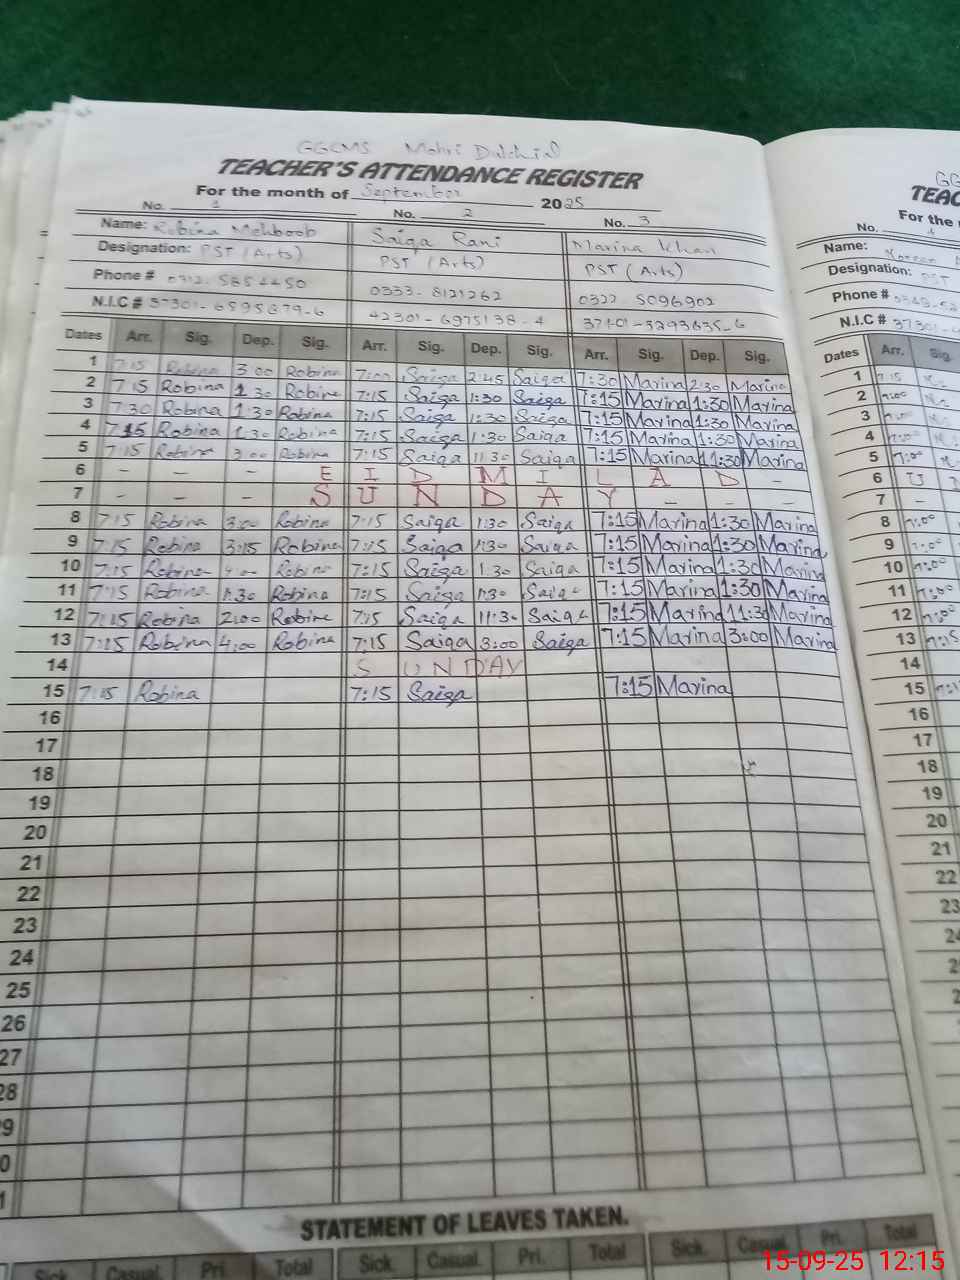 GGCMS Mohri Dulchial
TEACHER'S ATTENDANCE REGISTER
For the month of September 2025
No. 1 No. 2 No. 3
Name: Robina Mehboob Saiqa Rani Marina Khan
Designation: PST (Arts) PST (Arts) PST (Arts)
Phone # 0312-5854450 0333-8121262 0322-5096902
N.I.C # 37301-6595879-6 42301-6975138-4 37401-5293635-6
Dates Arr. Sig. Dep. Sig. Arr. Sig. Dep. Sig. Arr. Sig. Dep. Sig.
1 7:15 Robina 3:00 Robina 7:00 Saiqa 2:45 Saiqa 7:30 Marina 2:30 Marina
2 7:15 Robina 1:30 Robina 7:15 Saiqa 1:30 Saiqa 7:15 Marina 1:30 Marina
3 7:30 Robina 1:30 Robina 7:15 Saiqa 1:30 Saiqa 7:15 Marina 1:30 Marina
4 7:15 Robina 1:30 Robina 7:15 Saiqa 1:30 Saiqa 7:15 Marina 1:30 Marina
5 7:15 Robina 3:00 Robina 7:15 Saiqa 11:30 Saiqa 7:15 Marina 11:30 Marina
6 – – – E I D M I L A D –
7 – – – S U N D A Y – – –
8 7:15 Robina 3:00 Robina 7:15 Saiqa 1:30 Saiqa 7:15 Marina 1:30 Marina
9 7:15 Robina 3:15 Robina 7:15 Saiqa 1:30 Saiqa 7:15 Marina 1:30 Marina
10 7:15 Robina 4:00 Robina 7:15 Saiqa 1:30 Saiqa 7:15 Marina 1:30 Marina
11 7:15 Robina 1:30 Robina 7:15 Saiqa 1:30 Saiqa 7:15 Marina 1:30 Marina
12 7:15 Robina 2:00 Robina 7:15 Saiqa 11:30 Saiqa 7:15 Marina 11:30 Marina
13 7:15 Robina 4:00 Robina 7:15 Saiqa 3:00 Saiqa 7:15 Marina 3:00 Marina
14 SUNDAY
15 7:15 Robina 7:15 Saiqa 7:15 Marina
16
17
18
19
20
21
22
23
24
25
26
27
28
9
0
1
STATEMENT OF LEAVES TAKEN.
Sick. Casual. Pri. Total Sick. Casual. Pri. Total Sick. Casual. Pri. Total
GG
TEAC
For the
No. 1
Name:
Designation: PST
Phone #
N.I.C # 37301-
Dates Arr. Sig.
1 7:15
2 7:00
3 7:00
4 7:00
5 7:00
6 U
7 –
8 7:00
9 7:00
10 7:00
11 7:00
12 7:00
13 7:15
14
15
16
17
18
19
20
21
22
23
24
15-09-25 12:15